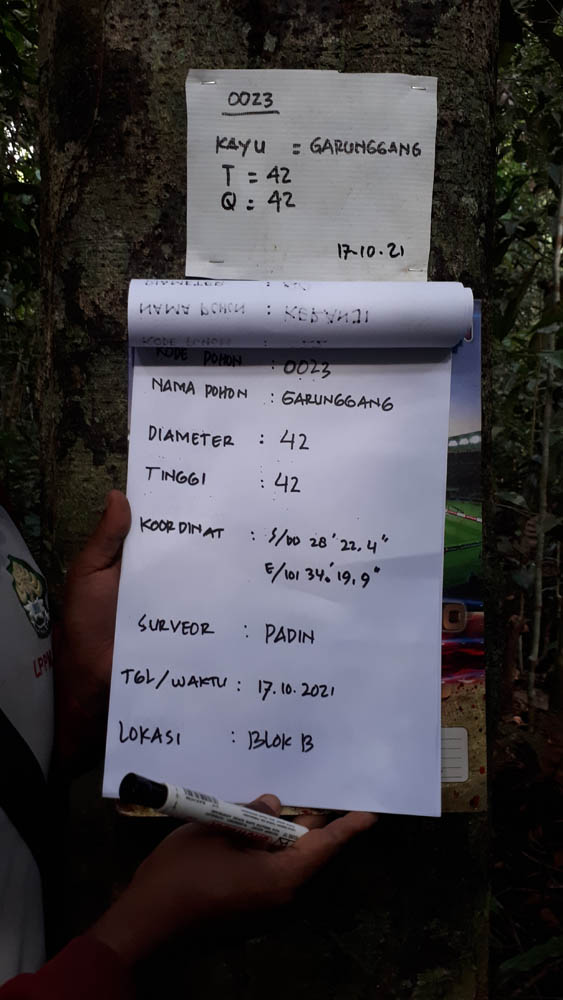 0023
KAYU = GARUNGGANG
T = 42
Q = 42
17-10.21
NAMA POHON : KERANJI
KODE POHON : 0023
NAMA POHON : GARUNGGANG
DIAMETER : 42
TINGGI : 42
KOORDINAT : S/00 28' 22,4"
E/101 34.' 19,9"
SURVEOR : PADIN
TGL/WAKTU : 17.10.2021
LOKASI : BLOK B